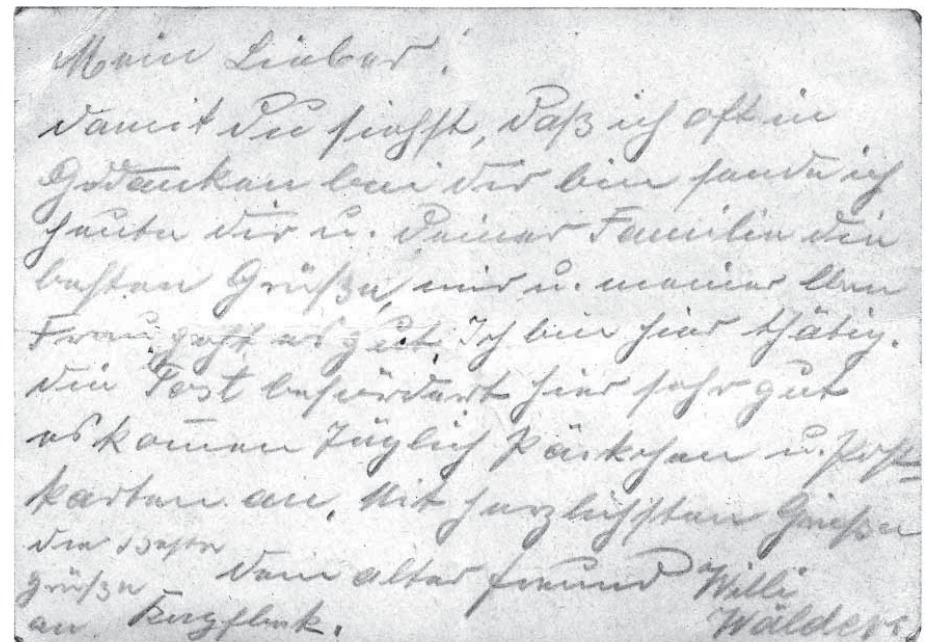 Mein Lieber!
damit du siehst, daß ich oft in
Gedanken bei dir bin sende ich
heute dir u. deiner Familie die
besten Grüße, mir u. meiner lben
Frau geht es gut. Ich bin hier thätig.
die Post befördert hier sehr gut
es komen täglich Päckchen u. Post-
karten an. Mit herzlichsten Grüßen
dein alter Freund Willi
Wälders
die Beste
Grüße
an